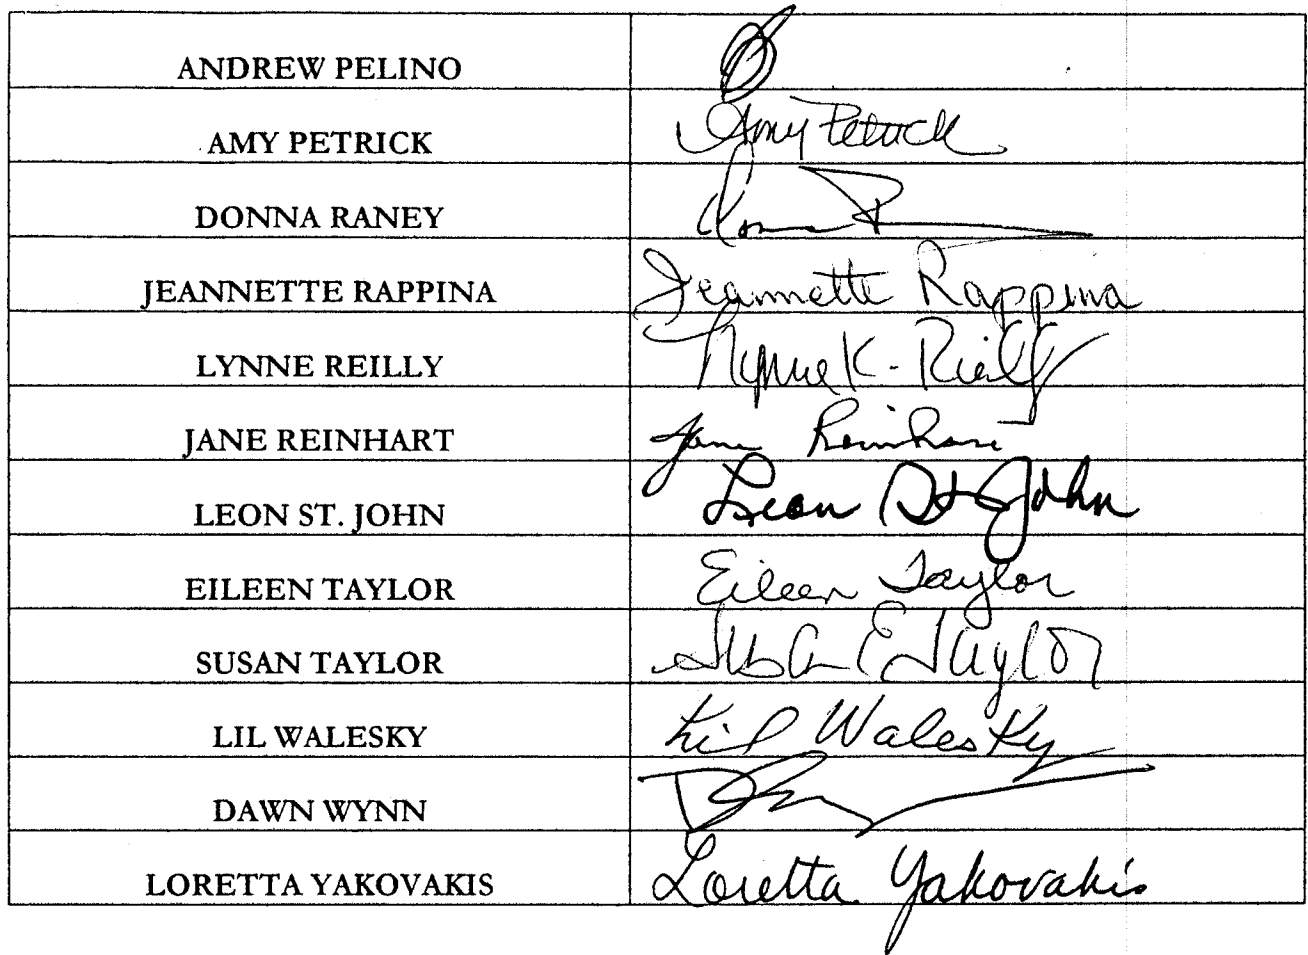 ANDREW PELINO
AMY PETRICK Amy Petrick
DONNA RANEY Donna R
JEANNETTE RAPPINA Jeannette Rappina
LYNNE REILLY Lynne K. Reilly
JANE REINHART Jane Reinhart
LEON ST. JOHN Leon St John
EILEEN TAYLOR Eileen Taylor
SUSAN TAYLOR Susan E Taylor
LIL WALESKY Lil Walesky
DAWN WYNN
LORETTA YAKOVAKIS Loretta Yakovakis